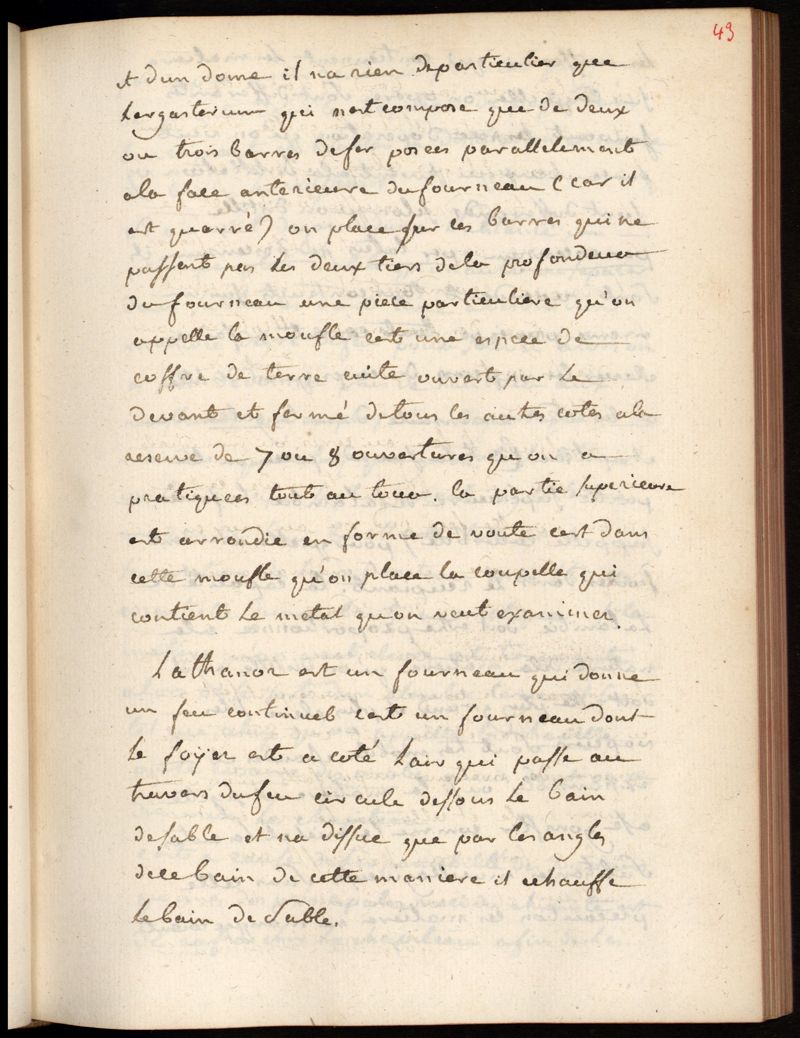 49
et d'un dome il na rien de particulier que
Lergasterium qui n'est compose que de deux
ou trois barres de fer posees parallelement
a la face anterieure du fourneau (car il
est quarré) on place sur ces barres qui ne
passent pas les deux tiers de la profondeur
du fourneau une piece particuliere qu'on
appelle la moufle cest une espece de
coffre de terre cuite ouvert par le
devant et fermé de tous les autres cotes a la
reserve de 7 ou 8 ouvertures qu'on a
pratiquees tout au tour. la partie superieure
est arrondie en forme de voute cest dans
cette moufle qu'on place la coupelle qui
contient le metal qu'on veut examiner.
Lathanor est un fourneau qui donne
un feu continuel cest un fourneau dont
le foÿer est a coté Lair qui passe au
travers du feu circule dessous le bain
de sable et na dissue que par les angles
de ce bain de cette maniere il echauffe
le bain de sable.